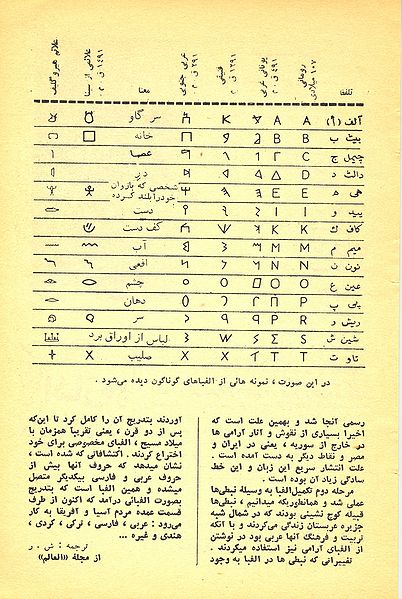 تلفظ رومانی ۱۰۷ میلادی یونانی غربی ۴۹۱ ق م فنیقی ۱۲۹۱ ق م عربی جنوبی ۲۹۱ ق م معنا علائمی از سینا ۱۴۹۱ ق م علائم هیروگلیف
آلف (۹) A A K سر گاو
بیث ب B B خانه
جیمل ج C عصا
دالث د D در
هی ه E E شخصی که بازوان خود را بلند کرده
یید و I I دست
کاف ک K K کف دست
میم م M M آب
نون ن N N افعی
عین ع O O چشم
پی پ P دهان
ریش ر R P سر
شین ش S Σ W لباس از اوراق برد
تاو ت T T X صلیب X
در این صورت ، نمونه هائی از الفباهای گوناگون دیده می‌شود .
رسمی آنجا شد و بهمین علت است که
اخیرا بسیاری از نقوش و آثار آرامی ها
در خارج از سوریه ، یعنی در ایران و
مصر و نقاط دیگر به دست آمده است .
علت انتشار سریع این زبان و این خط
سادگی زیاد آن بوده است .
مرحله دوم تکمیل الفبا به وسیله نبطی‌ها
عملی شد و همانطوریکه میدانیم ، نبطی‌ها
قبیله کوچ نشینی بودند که در شمال شبه
جزیره عربستان زندگی می‌کردند و با آنکه
تربیت و فرهنگ آنها عربی بود در نوشتن
از الفبای آرامی نیز استفاده میکردند .
تغییراتی که نبطی ها در الفبا به وجود
آوردند بتدریج آن را کامل کرد تا این‌که
پس از دو قرن ، یعنی تقریبا همزمان با
میلاد مسیح ، الفبای مخصوصی برای خود
اختراع کردند . اکتشافاتی که شده است ،
نشان میدهد که حروف آنها بیش از
حروف عربی و فارسی بیکدیگر متصل
میشده و همین الفبا است که بتدریج
بصورت الفبائی درآمد که اکنون از طرف
قسمت عمده مردم آسیا و آفریقا به کار
می‌رود : عربی ، فارسی ، ترکی ، کردی ،
هندی و غیره ...
ترجمه : ش . ر
از مجلهٔ «العالم»